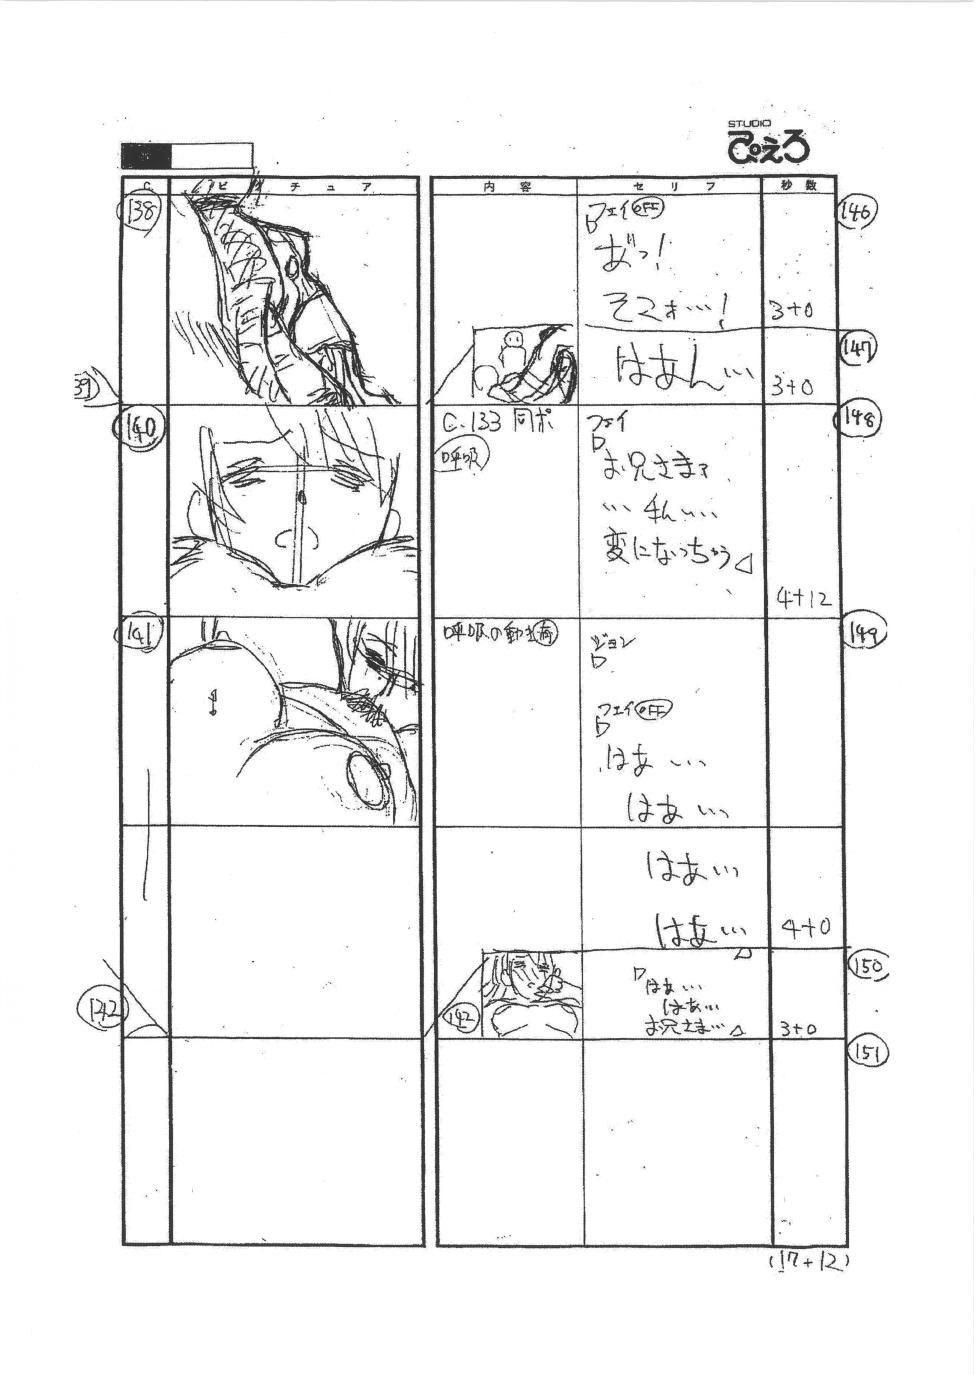 STUDIO
ぴえろ
C. ピクチュア 内容 セリフ 秒数
138
フェイ OFF
あ゛っ!
そこォ…!
3+0
146
139
はあん…
3+0
147
140
C.133 同ポ
呼吸
フェイ
お兄さまァ
…私……
変になっちゃう
4+12
148
141
呼吸の動き
ジョン
フェイ OFF
はあ…
はあ…
149
はあ…
はあ…
4+0
142
142
はぁ…
はぁ…
お兄さま…
3+0
150
151
(17+12)